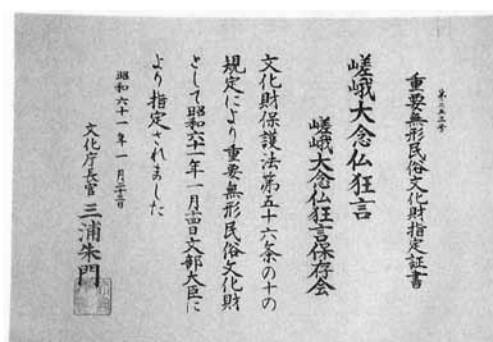 重要無形民俗文化財指定証書
嵯峨大念仏狂言
嵯峨大念仏狂言保存会
文化財保護法第五十六条の十の
規定により重要無形民俗文化財
として昭和六十一年一月十四日文部大臣に
より指定されました
昭和六十一年一月
文化庁長官 三浦朱門